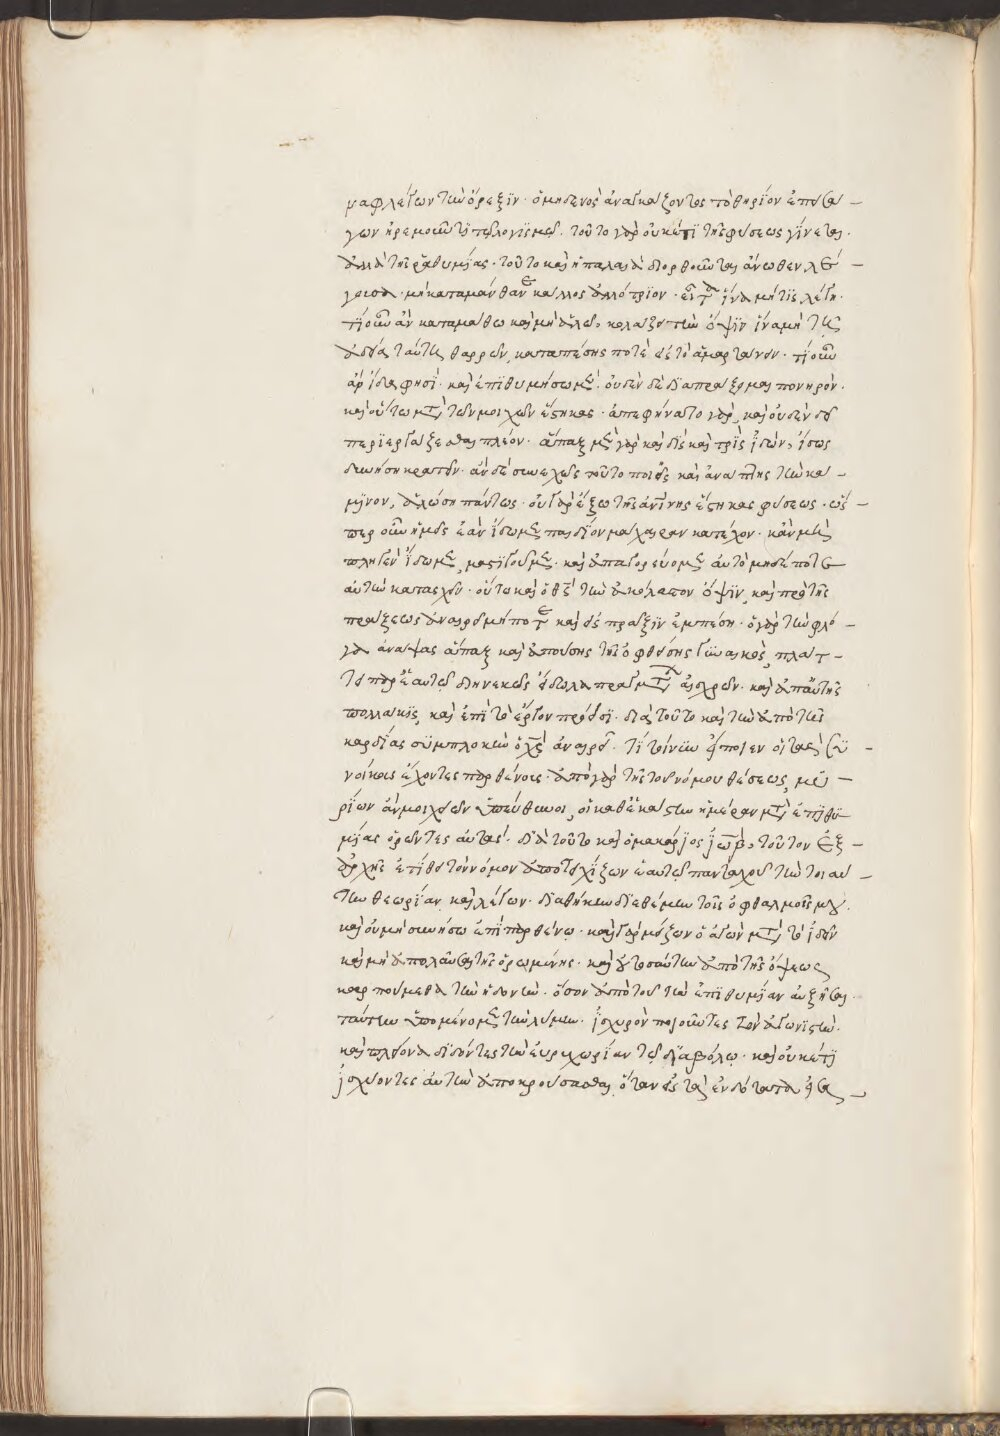 μαφλέγων τὴν ὄρεξιν· ὁ μηδενὸς ἀναγκάζοντος τὸ θηρίον ἐπεισα
γων ἠρεμοῦντι τῷ λογισμῷ. τοῦτο γὰρ οὐκέτι τῆς φύσεως γίνεται·
ἀλλὰ τῆς ῥαθυμίας· τοῦτο καὶ ἡ παλαιὰ διορθοῦται ἄνωθεν λέ
γουσα· μὴ καταμάνθανε κάλλος ἀλλότριον· εἶτα ἵνα μή τις λέγη·
τί οὖν ἂν καταμάθω καὶ μὴ ἁλῶ, κολάζει τὴν ὄψιν ἵνα μὴ τῆ
ἀδεία ταύτη θαρρῶν, καταπέσης ποτὲ εἰς τὸ ἁμαρτάνειν· τί οὖν
ἂν ἴδω φησὶ· καὶ ἐπιθυμήσω μὲν· οὐδὲν δὲ διαπράξωμαι πονηρόν·
καὶ οὕτω μετὰ τῶν μοιχῶν ἕστηκας· ἀπεφήνατο γὰρ, καὶ οὐδὲν δεῖ
περιεργάζεσθαι πλέον· ἅπαξ μὲν γὰρ καὶ δὶς καὶ τρὶς ἰδών, ἴσως
δυνήση κρατεῖν· ἂν δὲ συνεχῶς τοῦτο ποιῆς καὶ ἀνάπτης τὴν κά
μινον, ἁλώση πάντως· οὐ γὰρ ἔξω τῆς ἀνθρωπίνης ἕστηκας φύσεως· ὥσ
περ οὖν ἡμεῖς ἐὰν ἴδωμεν παιδίον μάχαιραν κατέχον· κἂν μὴ
πληγὲν ἴδωμεν, μαστίζομεν· καὶ ἀπαγορεύομεν αὐτὸ μηδέποτε
αὐτὴν κατασχεῖν· οὕτω καὶ ὁ θεὸς τὴν ἀκόλαστον ὄψιν, καὶ πρὸ τῆς
πράξεως ἀναιρεῖ μήποτε καὶ εἰς πρᾶξιν ἐμπέση· ὁ γὰρ τὴν φλό
γα ἀνάψας ἅπαξ καὶ ἀπούσης τῆς ὀφθείσης γυναικὸς, πλάτ
τει παρ' ἑαυτῷ διηνεκῶς εἴδωλα πραγμάτων αἰσχρῶν· καὶ ἀπ' αὐτῆς
πολλάκις, καὶ ἐπὶ τὸ ἔργον πρόεισι· διὰ τοῦτο καὶ τὴν ἀπὸ τῆς
καρδίας συμπλοκὴν ὁ χριστὸς ἀναιρεῖ. τί τοίνυν εἴποιεν οἱ τὰς συ
νοίκους ἔχοντες παρθένους· ἀπὸ γὰρ τῆς τοῦ νόμου θέσεως, μυ
ρίων ἂν μοιχειῶν ὑπεύθυνοι, οἱ καθ' ἑκάστην ἡμέραν μετὰ ἐπιθυ
μίας ὁρῶντες αὐτάς· διὰ τοῦτο καὶ ὁ μακάριος ἰὼβ, τοῦτον ἐξ
ἀρχῆς ἐτίθει τὸν νόμον ἀποτειχίζων ἑαυτῷ πανταχοῦ τὴν τοιαύ
την θεωρίαν καὶ λέγων· διαθήκην διεθέμην τοῖς ὀφθαλμοῖς μου·
καὶ οὐ μὴ συνήσω ἐπὶ παρθένῳ· καὶ γὰρ μείζων ὁ ἀγὼν μετὰ τὸ ἰδεῖν
καὶ μὴ ἀπολαῦσαι τῆς ὁρωμένης· καὶ οὐ τοσαύτην ἀπὸ τῆς ὄψεως
καρπούμεθα τὴν ἡδονὴν· ὅσον ἀπὸ τοῦ τὴν ἐπιθυμίαν αὐξῆσαι·
ταύτην ὑπομένομεν τὴν λύμην· ἰσχυρὸν ποιοῦντες τὸν ἀγωνιστὴν·
καὶ πλείονα διδόντες τὴν εὐρυχωρίαν τῷ διαβόλῳ· καὶ οὐκέτι
ἰσχύοντες αὐτὴν ἀποκρούσασθαι, ὅταν εἰς τὰ ἐνδότατα εἰσα